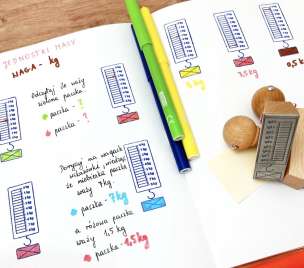 JEDNOSTKI MASY
WAGA - kg
Odczytaj ile waży
zielona paczka
paczka - ?
paczka - ?
Dorysuj na wagach
wskazówkę, wiedząc,
że niebieska paczka
waży 7kg
paczka - 7kg
a różowa paczka
waży 1,5 kg
paczka - 1,5kg
5kg
7,5kg
0,5k